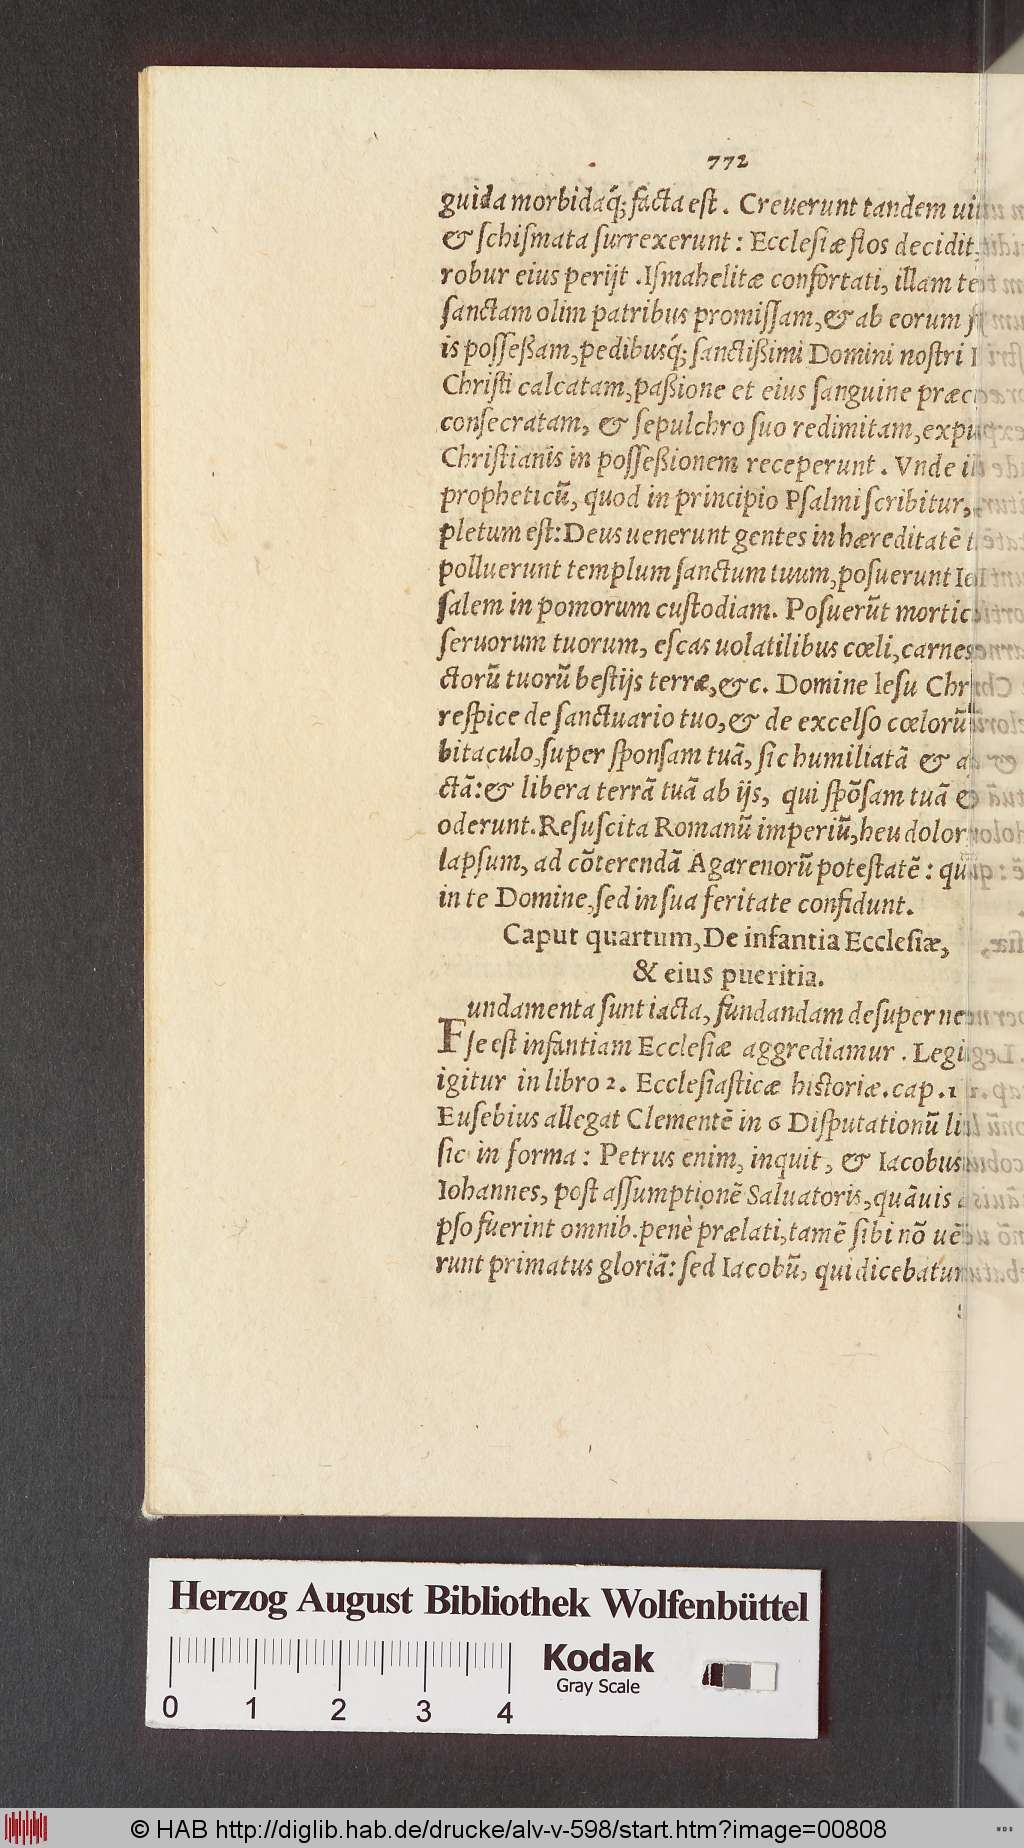 772
guida morbidaq́; facta est. Creuerunt tandem
& schismata surrexerunt: Ecclesiæ flos decidit,
robur eius perijt. Ismahelitæ confortati, illam
sanctam olim patribus promissam, & ab eorum
is posseßam, pedibusq́; sanctißimi Domini nostri
Christi calcatam, paßione et eius sanguine
consecratam, & sepulchro suo redimitam,
Christianis in posseßionem receperunt. Vnde
propheticũ, quod in principio Psalmi scribitur,
pletum est: Deus uenerunt gentes in hæreditatẽ
polluerunt templum sanctum tuum, posuerunt
salem in pomorum custodiam. Posuerũt
seruorum tuorum, escas uolatilibus cœli, carnes
ctorũ tuorũ bestijs terræ, &c. Domine Iesu
respice de sanctuario tuo, & de excelso cœlorũ
bitaculo, super sponsam tuã, sic humiliatã &
ctã: & libera terrã tuã ab ijs, qui spõsam tuã
oderunt. Resuscita Romanũ imperiũ, heu
lapsum, ad cõterendã Agarenorũ potestatẽ:
in te Domine, sed in sua feritate confidunt.
Caput quartum, De infantia Ecclesiæ,
& eius pueritia.
Fundamenta sunt iacta, fundandam desuper
se est infantiam Ecclesiæ aggrediamur.
igitur in libro 2. Ecclesiasticæ historiæ. cap.
Eusebius allegat Clementẽ in 6 Disputationũ
sic in forma: Petrus enim, inquit, & Iacobus
Iohannes, post assumptionẽ Saluatoris, quãuis
pso fuerint omnib. penè prælati, tamẽ sibi nõ
runt primatus gloriã: sed Iacobũ, qui dicebatur
Herzog August Bibliothek Wolfenbüttel
0 1 2 3 4
Kodak
Gray Scale
© HAB http://diglib.hab.de/drucke/alv-v-598/start.htm?image=00808